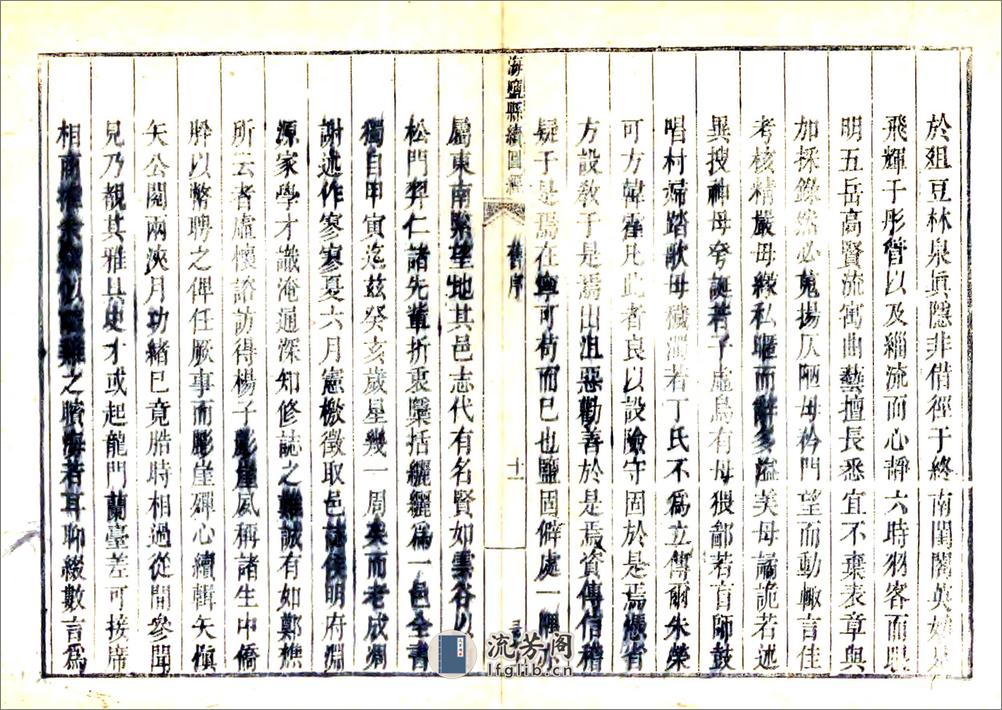 於爼豆林泉眞隱非借徑于終南閨閣英
飛輝于彤管以及緇流而心靜六時羽客而眼
明五岳高賢流寓曲藝擅長悉宜不棄表章與
加採錄然必蒐揚仄陋毋矜門望而動輙言佳
考核精嚴毋緣私暱而辭多溢美毋譎詭若述
異搜神毋夸誕若子虛烏有毋猥鄙若盲師鼓
唱村婦踏歌毋穢濁若丁氏不爲立傳爾朱榮
可方韓霍凡此者良以設險守固於是焉憑省
方設敎于是焉出沮惡勸善於是焉資傳信稽
疑于是焉在寧可苟而已也鹽固僻處一隅
海鹽縣續圖經
舊序
十一
屬東南緊望地其邑志代有名賢如雲谷以
松門羿仁諸先輩折衷檃括纚纚爲一邑全書
獨自甲寅迄兹癸亥歲星幾一周矣而老成凋
謝述作寥寥夏六月憲檄徵取邑誌侯明府淵
源家學才識淹通深知修誌之難誠有如鄭樵
所云者虛懷諮訪得楊子彪崖夙稱諸生中僑
肸以幣聘之俾任厥事而彪崖殫心續輯矢愼
矢公閱兩浹月功緒已竟詹時相過從間參聞
見乃覩其雅具史才或起龍門蘭臺差可接席
相商之臏海若耳聊綴數言爲
流芳阁
lfglib.cn